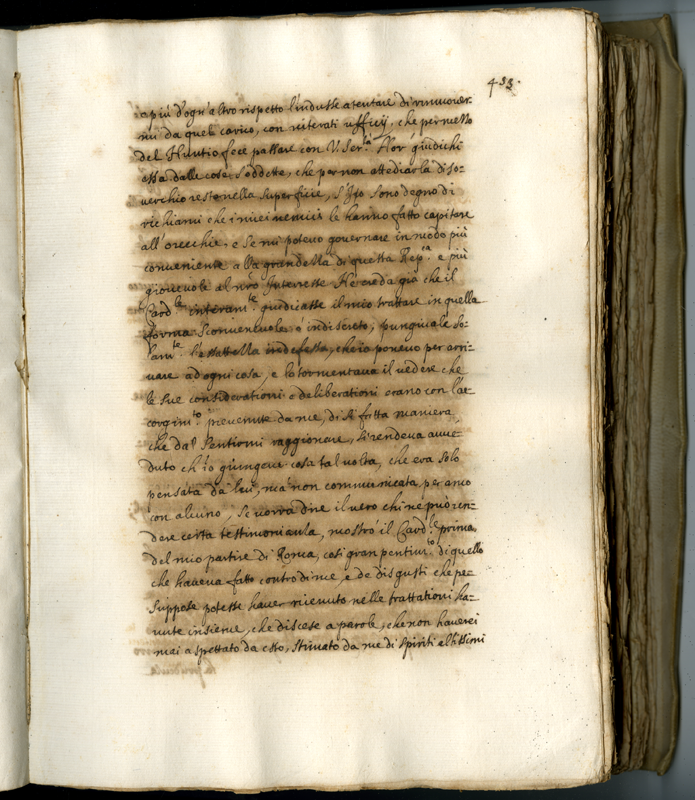 433.
a più d'ogn'altro rispetto l'indusse a tentare di rimmover-
mi da quel carico, con reiterati ufficij, che per mezzo
del Nuntio fece passare con V. Ser.tà Hor' giudichi
essa dalle cose sodette, che per non attediarla di so-
verchio resto nella superficie, s'Io sono degno di
richiami che i miei nemici le hanno fatto capitare
all'orecchie, e se mi potevo governare in modo più
conveniente alla grandezza di questa Rep.ca e più
giovevole al nro Interesse Ne creda già che il
Card.le interam.te giudicasse il mio trattare in quella
forma sconvenevole ò indiscreto, pungivale so-
lam.te l'esattezza indefessa, che io ponevo per arri-
vare ad ogni cosa, e lo tormentava il vedere che
le sue considerationi e deliberationi erano con l'ac-
corgim.to prevenute da me, di sì fatta maniera,
che dal raggionare, si rendeva avve-
duto ch'io giungevo cosa tal volta, che era solo
pensata da lui, ma non communicata per anco
con alcuno, se vorrà dire il vero chi ne può ren-
dere certa testimonianza, mostrò il Card.le prima
del mio partire di Roma, così gran pentim.to di quello
che haveva fatto contro di me, e de disgusti che pre-
suppose potesse haver ricevuto nelle trattationi ha-
vute insieme, che discese a parole, che non haverei
mai aspettato da esso, stimato da me di spiriti altissimi